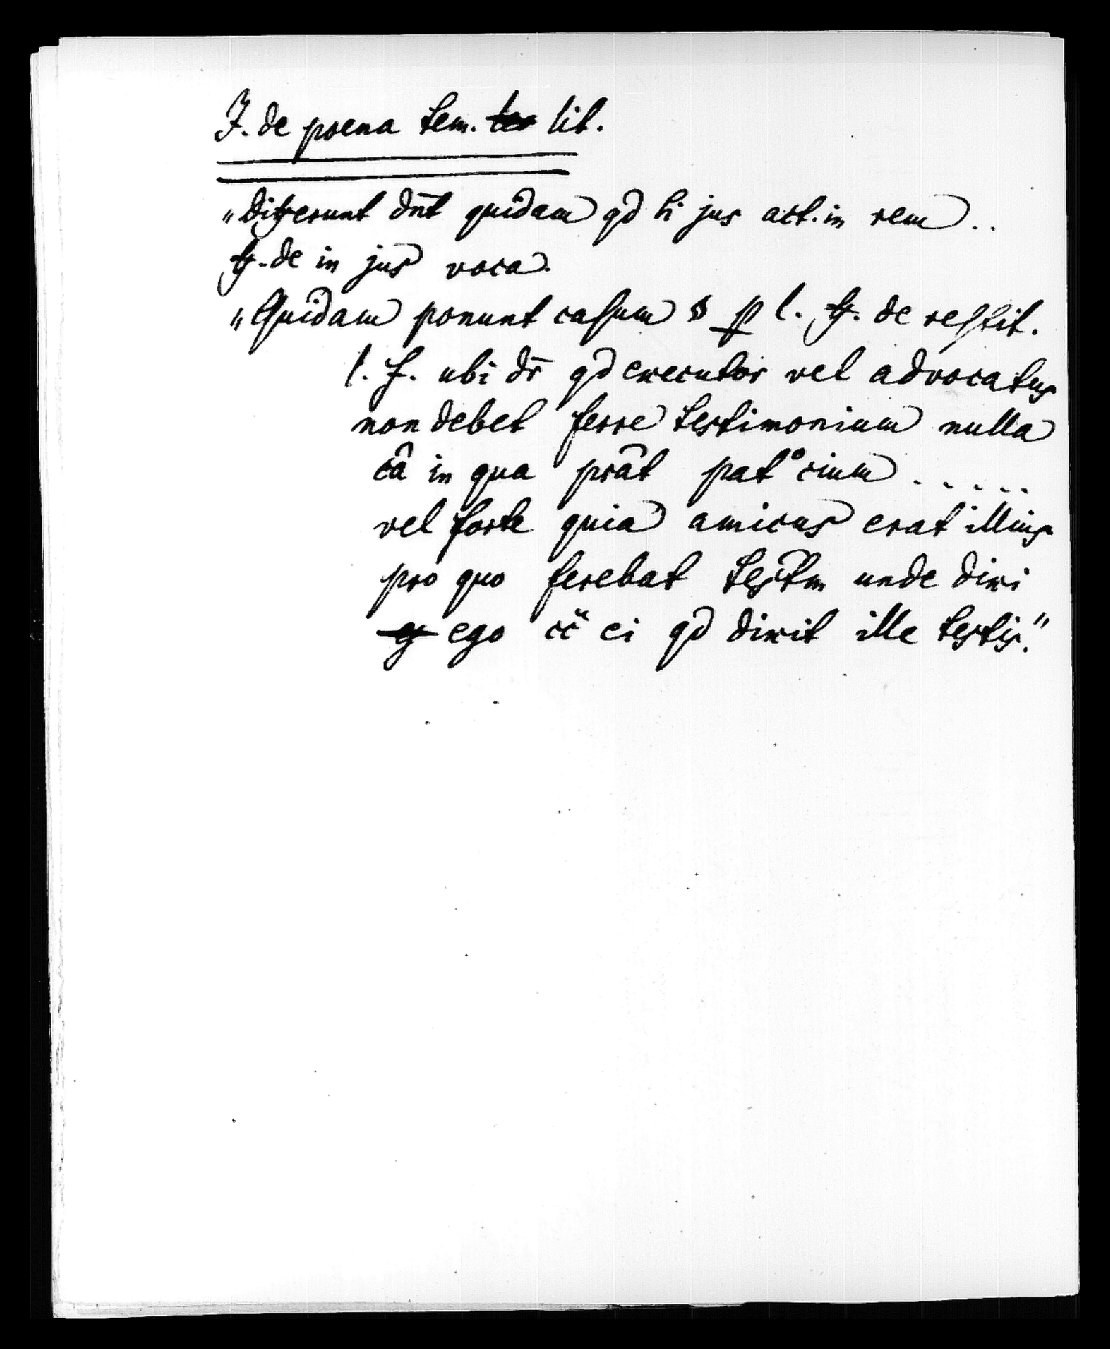 J. de poena tem. lit.
„ Differunt dn̄t quidam qd h̄i jus act. in rem . .
ff. de in jus voca.
„ Quidam ponunt casum s p l. ff. de restit.
l. f. ubi dr̄ qd executor vel advocatus
non debet ferre testimonium nulla
câ in qua prât pat°cium . . . . .
vel forte quia amicus erat illius
pro quo ferebat test̄m unde dixi
ego cc̄ ei qd dixit ille testis."